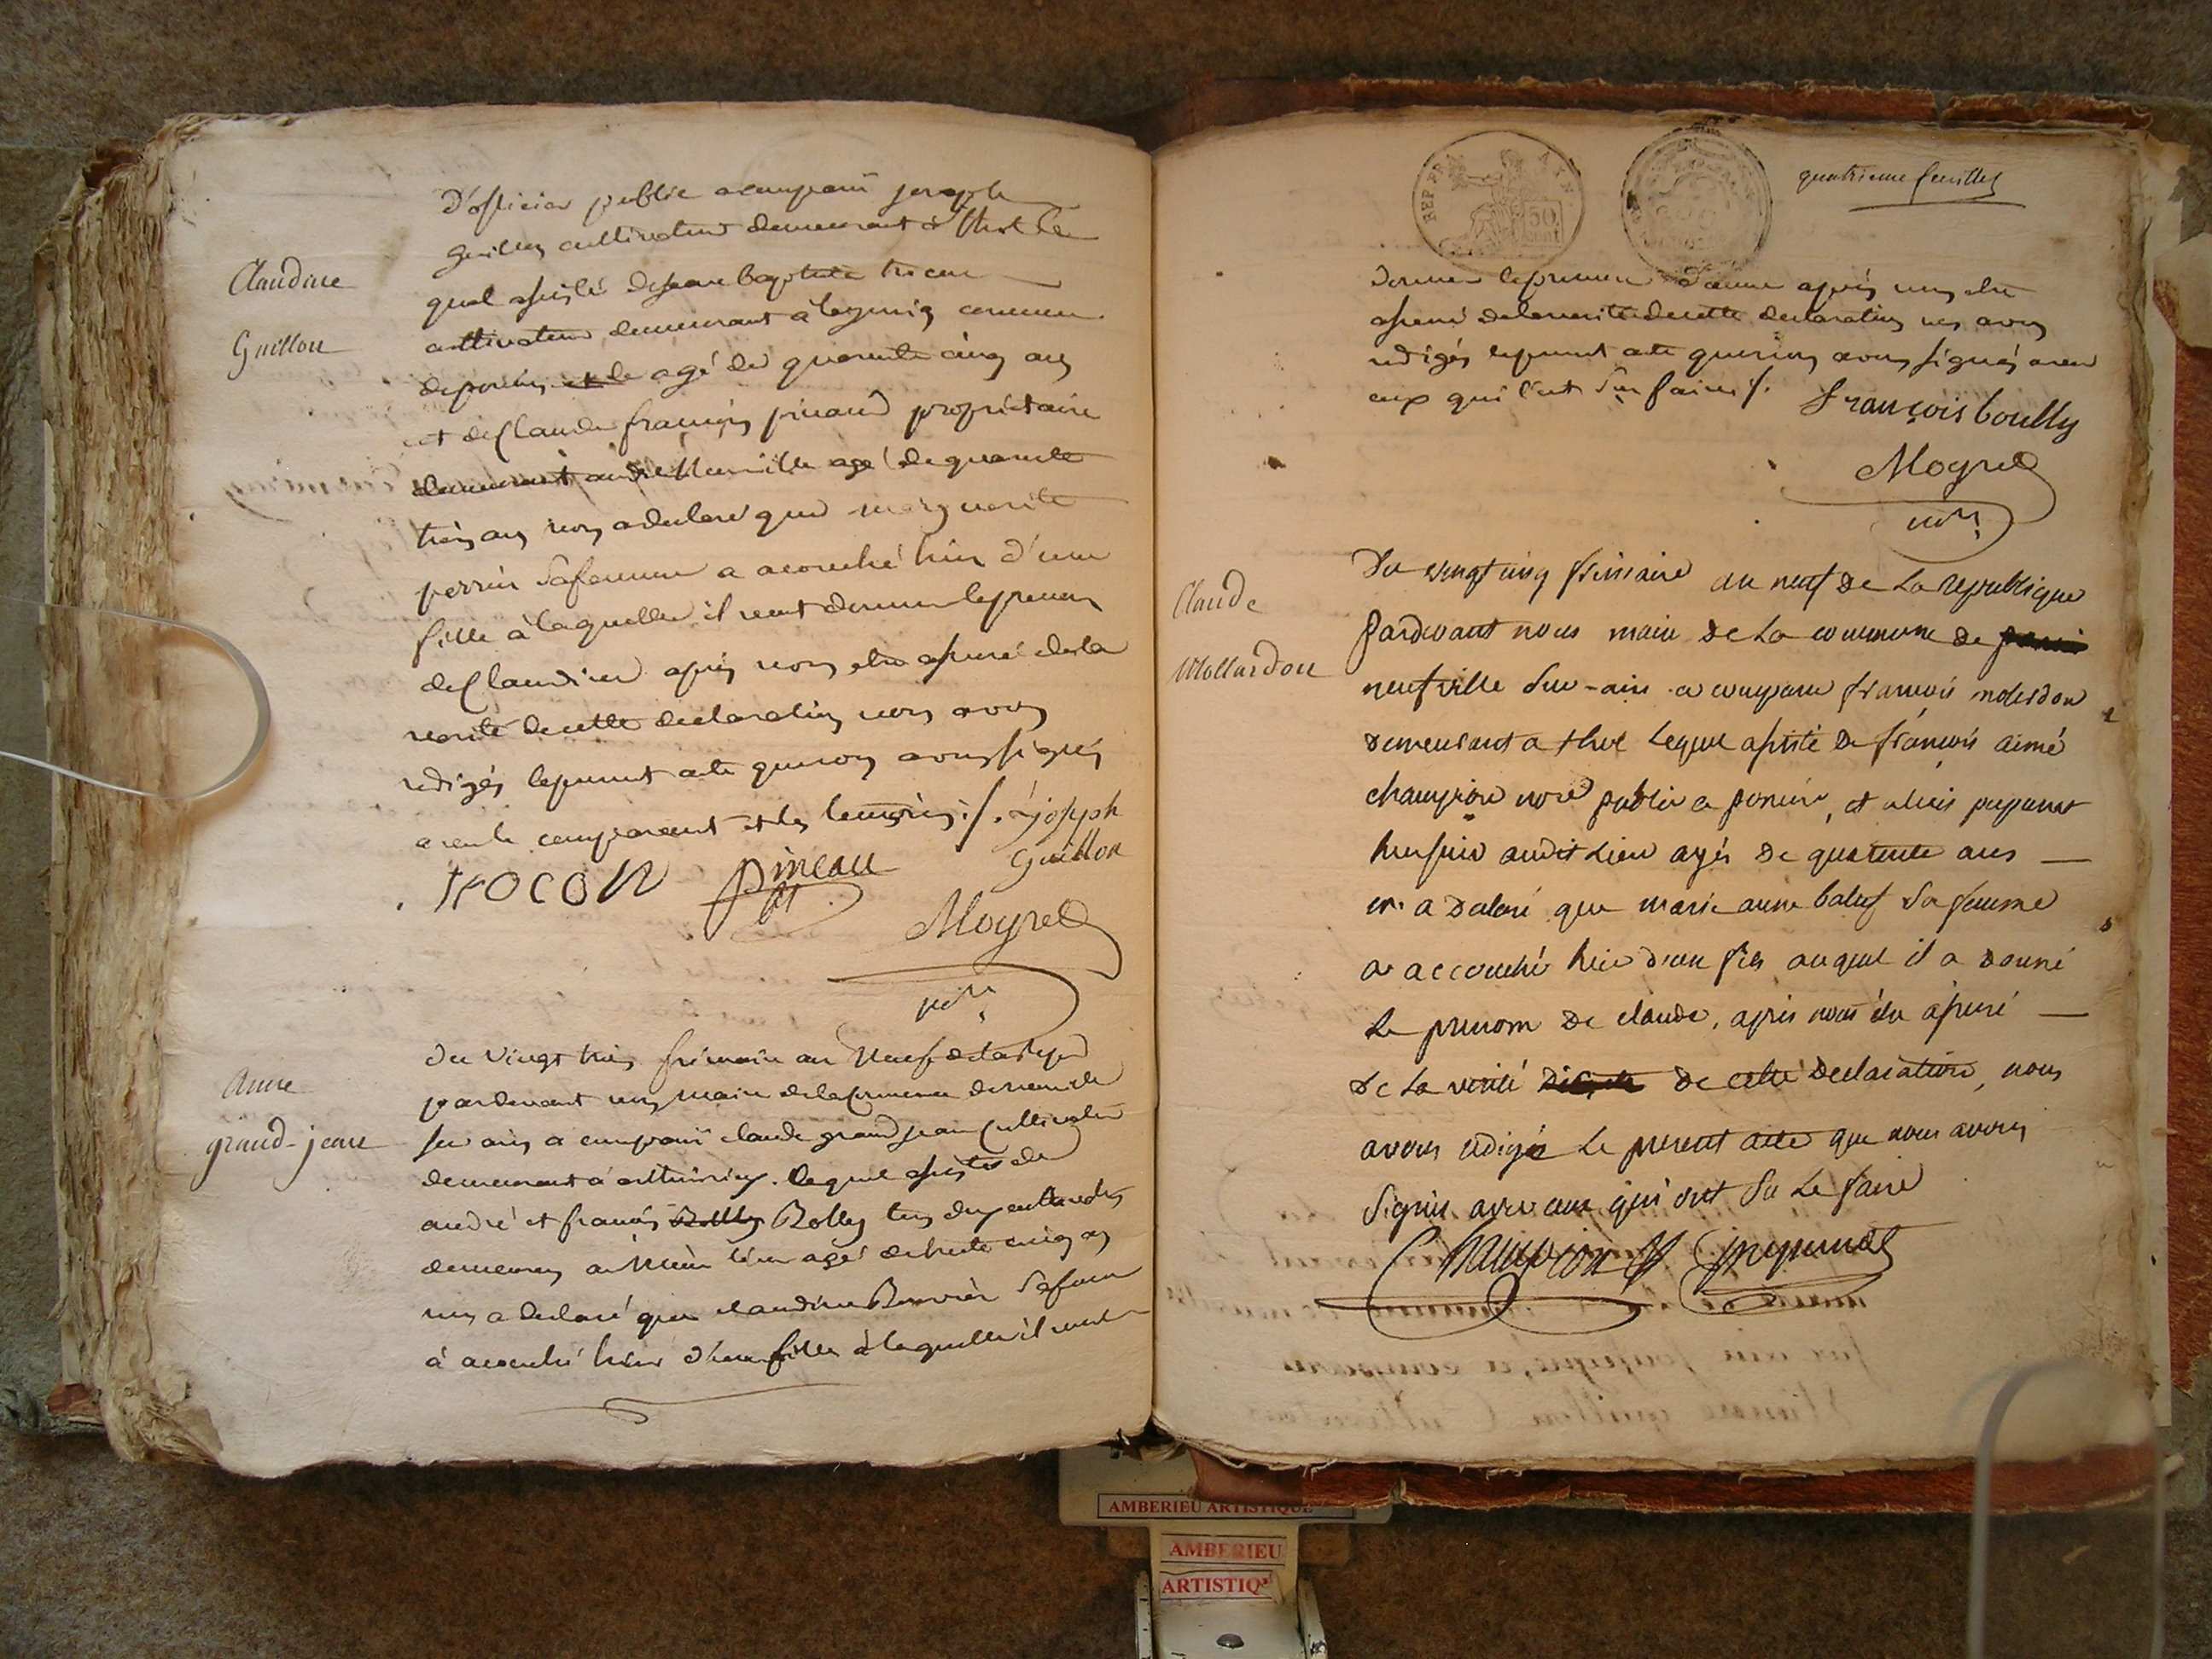 Claudine
Guillon
D'officier public a comparu joseph
Guillon cultivateur demeurant à thol le
quel assisté de jean baptiste
cultivateur demeurant à commune
de poncin agé de quarante cinq ans
et de Claude françois pinaud propriétaire
demeurant audit Neuville agé de quarante
trois ans nous a declaré que marguerite
perrin sa femme a acouché hier d'une
fille à laquelle il veut donner le prenom
de Claudine après nous etre assuré de la
verité de cette declaration nous avons
redigés le present acte que nous avons signés
avec le comparant et les temoins ./. joseph
Guillon
trocon pineau
Moyret
Anne
grand-jean
Du vingt trois frimaire an Neuf de la Rep
pardevant nous Maire de la Commune de neuville
sur ain a comparu claude grand jean Cultivateur
demeurant à lequel assisté de
andré et françois Bolly tous deux
demeurans au même lieu agé de trente cinq ans
nous a declaré que claudine sa femme
à acouché hier d'une fille à laquelle il veut
REP FRA
50
quatrieme feuillet
donner le prenom d'anne après nous etre
assuré de la verité de cette declaration nous avons
redigés le present acte que nous avons signés avec
eux qui l'ont su faire ./.
françois boully
Moyret
Claude
Mollardon
Du vingt cinq frimaire an neuf de La republique
pardevant nous maire de La commune de
neufville sur-ain a comparu françois molardon
demeurant a thol Lequel assisté de françois aimé
champion nore public a poncin, et
audit Lieu agés de quarente ans
a declaré que marie anne sa femme
a accouché hier d'un fils auquel il a donné
Le prenom de claude, après nous être assuré
de La verité de cette declaration, nous
avons redigés Le present acte que nous avons
signés avec ceux qui ont su Le faire
Champion
AMBERIEU ARTISTIQUE
AMBERIEU
ARTISTIQ